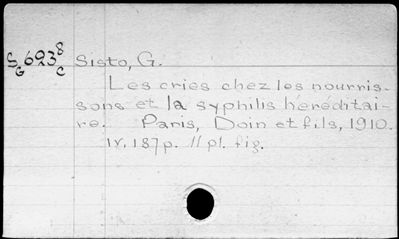 S693⁸ Sisto, G.
G C
Les cries chez les nourris-
sons et la syphilis héréditai-
re. Paris, Doin et fils, 1910.
IV. 187 p. 11 pl. fig.